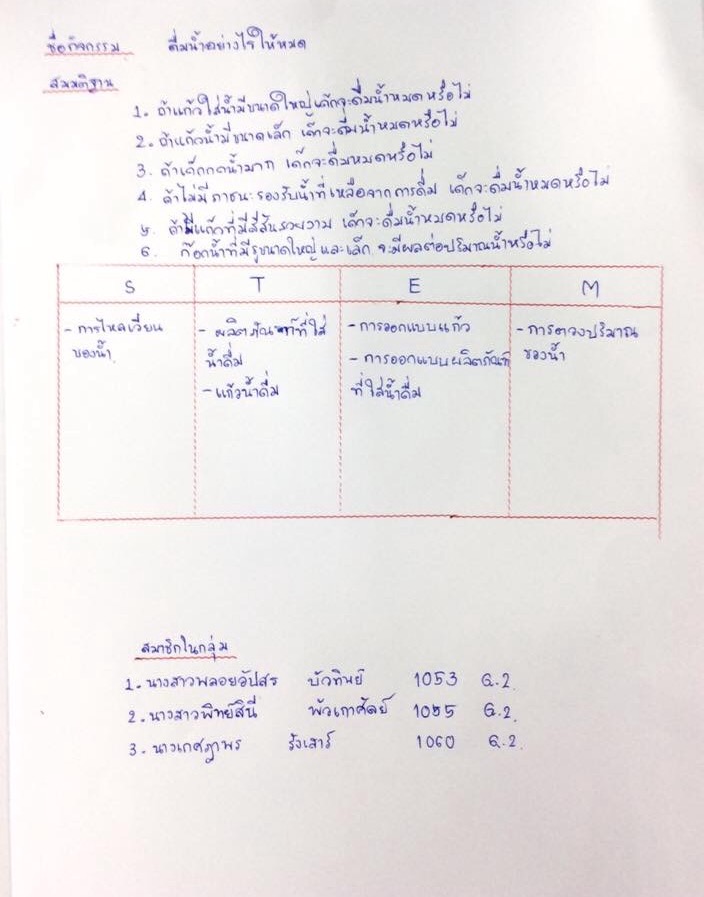 ชื่อกิจกรรม ดื่มน้ำอย่างไรให้หมด
สมมติฐาน
1. ถ้าแก้วใส่น้ำมีขนาดใหญ่เด็กจะดื่มน้ำหมดหรือไม่
2. ถ้าแก้วน้ำมีขนาดเล็ก เด็กจะดื่มน้ำหมดหรือไม่
3. ถ้าเด็กกดน้ำมาก เด็กจะดื่มหมดหรือไม่
4. ถ้าไม่มีภาชนะรองรับน้ำที่เหลือจากการดื่ม เด็กจะดื่มน้ำหมดหรือไม่
5. ถ้ามีแก้วที่มีสีสันสวยงาม เด็กจะดื่มน้ำหมดหรือไม่
6. ก๊อกน้ำที่มีรูขนาดใหญ่และเล็ก จะมีผลต่อปริมาณน้ำหรือไม่
S T E M
- การไหลเวียน
ของน้ำ
- ผลิตภัณฑ์ที่ใส่
น้ำดื่ม
- แก้วน้ำดื่ม
- การออกแบบแก้ว
- การออกแบบผลิตภัณฑ์
ที่ใส่น้ำดื่ม
- การตวงปริมาณ
ของน้ำ
สมาชิกในกลุ่ม
1. นางสาวพลอยอัปสร บัวทิพย์ 1053 G.2
2. นางสาวพิทย์สินี 1055 G.2
3. นางเกศฎาพร รังเสาร์ 1060 G.2